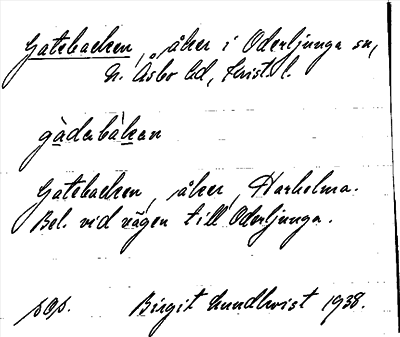 Gatebacken, åker i Oderljunga sn,
N. Åsbo hd, Krist. l.
gàdebàkan
Gatebacken, åker, Harholma.
Bel. vid vägen till Oderljunga.
sOs. Birgit Lundkvist 1938.